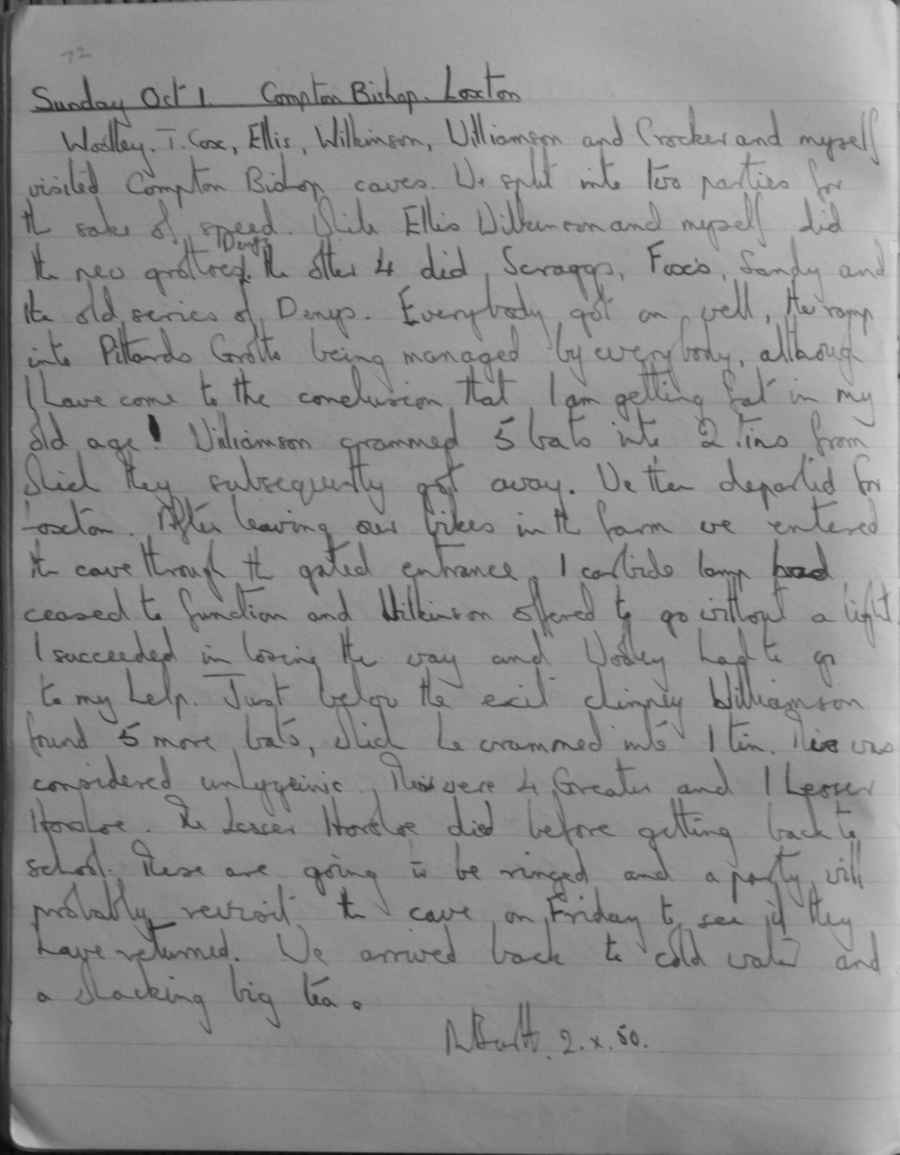 72
Sunday Oct 1. Compton Bishop. Loxton
Woolley. T. Cox, Ellis, Wilkinson, Williamson and Crocker and myself
visited Compton Bishop caves. We split into two parties for
the sake of speed. While Ellis Wilkinson and myself did
Denys
the new grottoes, the other 4 did, Scraggs, Foxes, Sandy and
the old series of Denys. Everybody got on well, the romp
into Pittards Grotto being managed by everybody, although
I have come to the conclusion that I am getting fat in my
old age! Williamson crammed 5 bats into 2 tins from
which they subsequently got away. We then departed for
Loxton. After leaving our bikes in the farm we entered
the cave through the gated entrance. 1 carbide lamp had
ceased to function and Wilkinson offered to go without a light
I succeeded in losing the way and Woolley had to go
to my help. Just below the exit chimney Williamson
found 5 more bats, which he crammed into 1 tin. This was
considered unhygeinic. There were 4 Greater and 1 Lesser
Horshoe. The Lesser Horshoe died before getting back to
school. These are going to be ringed and a party will
probably revisit the cave on Friday to see if they
have returned. We arrived back to cold water and
a whacking big tea.
2.x.50.